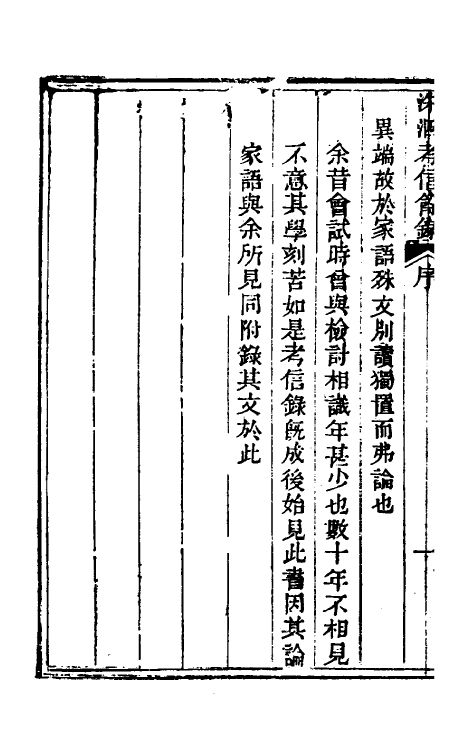 洙泗考信餘錄 序 十
異端故於家語殊文別讀獨置而弗論也
余昔會試時曾與檢討相識年甚少也數十年不相見
不意其學刻苦如是考信錄旣成後始見此書因其論
家語與余所見同附錄其文於此